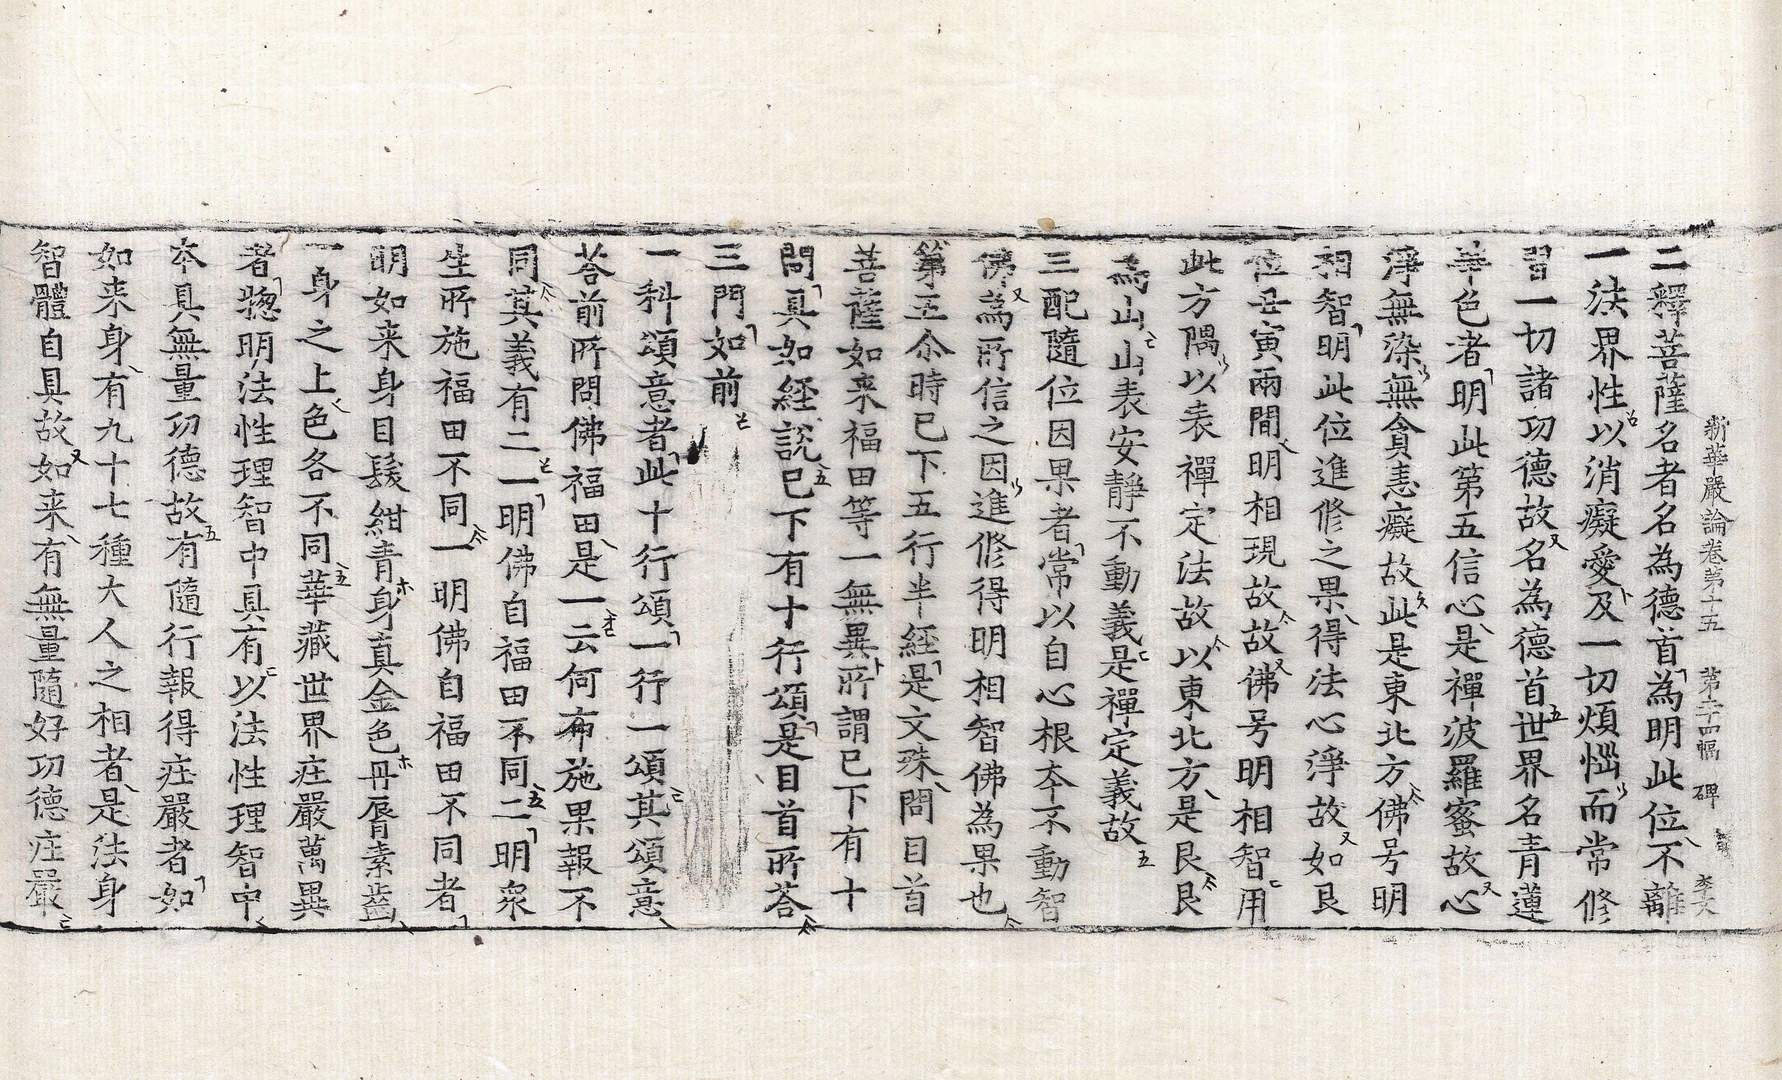 新華嚴論卷第十五 第二十四幅 碑 李文
二釋菩薩名者名為德首為明此位不離
一法界性以消癡愛及一切煩惱而常修
習一切諸功德故名為德首世界名青蓮
華色者明此第五信心是禪波羅蜜故心
淨無染無貪恚癡故此是東北方佛号明
相智明此位進修之果得法心淨故如艮
位丑寅兩間明相現故故佛号明相智用
此方隅以表禪定法故以東北方是艮艮
為山山表安靜不動義是禪定義故
三配隨位因果者常以自心根本不動智
佛為所信之因進修得明相智佛為果也
第五尒時已下五行半經是文殊問目首
菩薩如来福田等一無異所謂已下有十
問具如經說已下有十行頌是目首所荅
三門如前
一科頌意者此十行頌一行一頌其頌意
荅前所問佛福田是一云何布施果報不
同其義有二一明佛自福田不同二明衆
生所施福田不同一明佛自福田不同者
明如来身目髮紺青身真金色丹脣素齒
一身之上色各不同華藏世界庄嚴萬異
者揔明法性理智中具有以法性理智中
本具無量功德故有隨行報得庄嚴者如
如来身有九十七種大人之相者是法身
智體自具故如来有無量隨好功德庄嚴